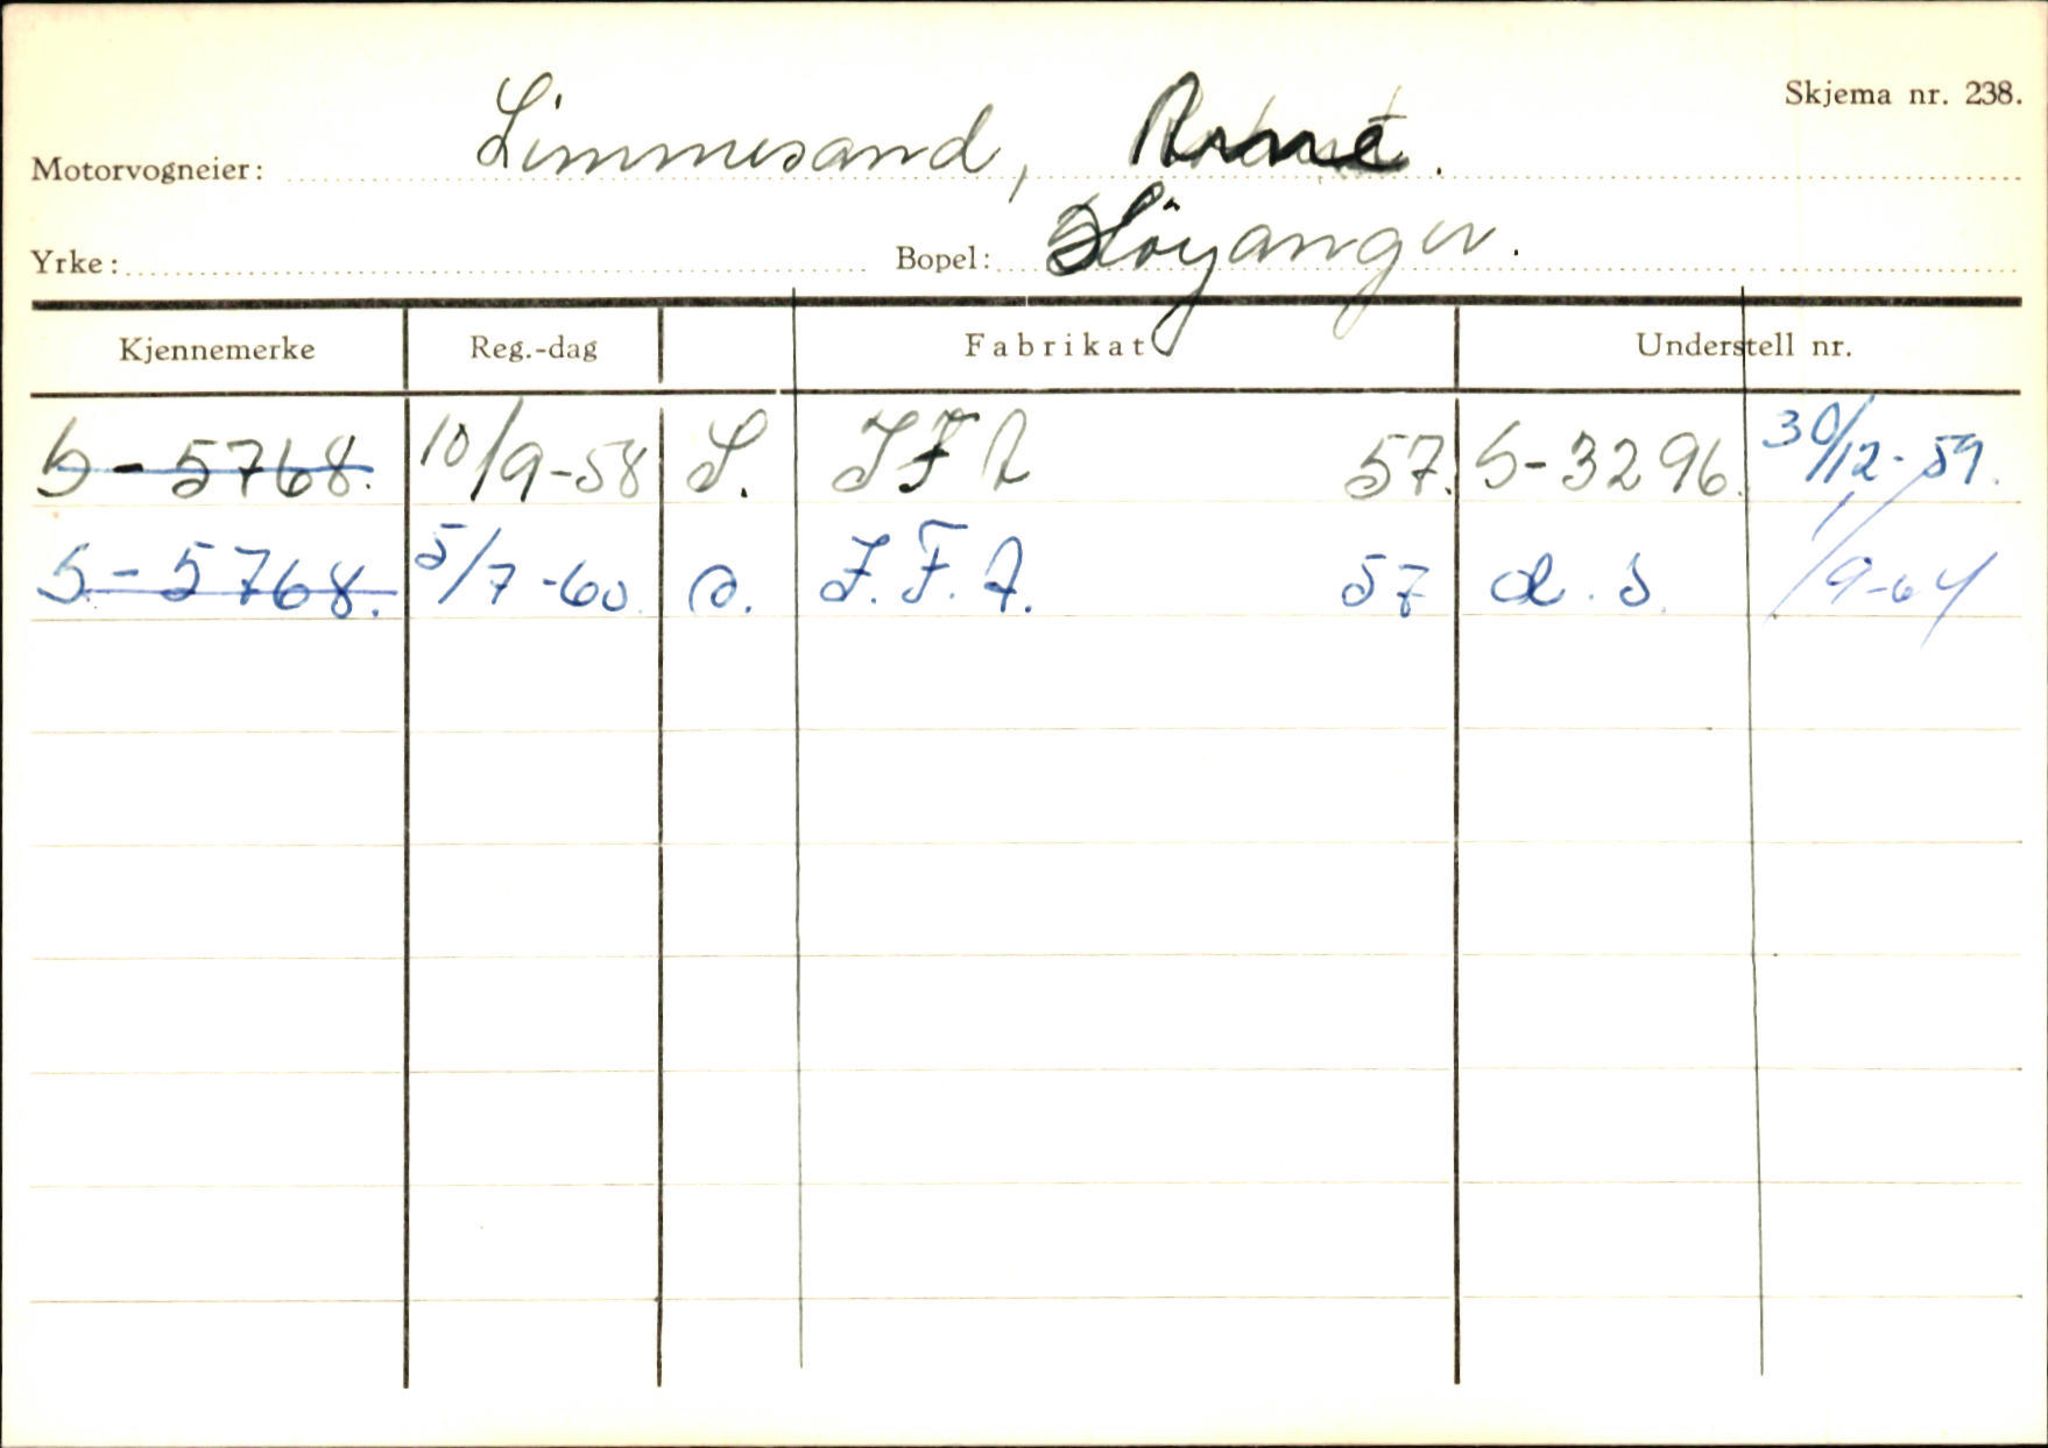 Skjema nr. 238.
Motorvogneier: Limmesand,
Yrke: Bopel: Höyanger.
Kjennemerke Reg.-dag Fabrikat Understell nr.
S-5768. 10/9-58 S. IFA 57. S-3296. 30/12-59.
S-5768. 5/7-60. I.F.A. 57 d.s. /9-64